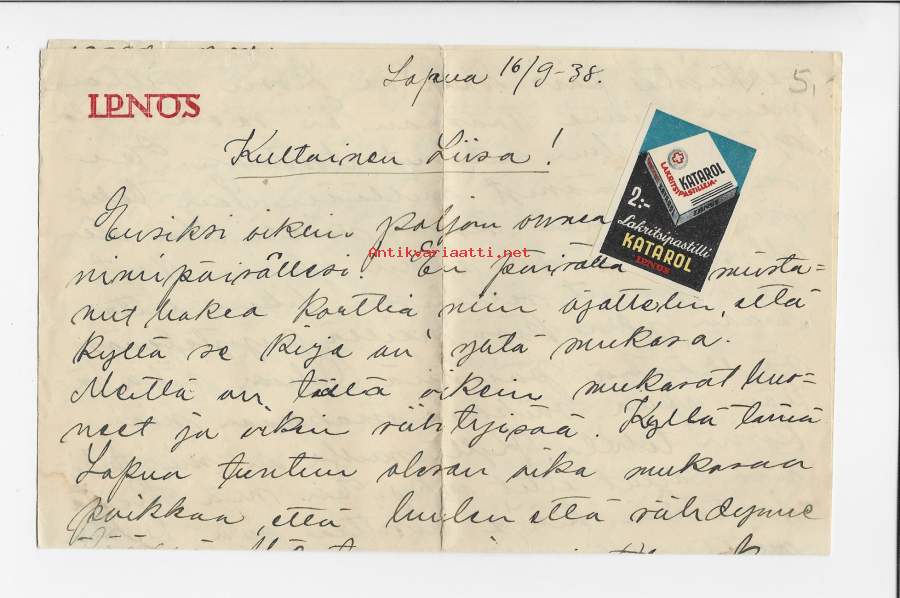 Lapua 16/9-38.
5,-
IPNOS
Kultainen Liisa!
KATAROL
LAKRITSIPASTILLEJA
2:-
Lakritsipastilli
KATAROL
IPNOS
Ensiksi oikein paljon onnea
Antikvariaatti.net
nimipäivällesi! En päivällä muista=
nut hakea korttia niin ajattelin, että
kyllä se kirje on yhtä mukava.
Meillä on täällä oikein mukavat huo=
neet ja oikein viihtyisää. Kyllä tämä
Lapua tuntuu olevan aika mukavaa
paikkaa, että luulen että viihdymme